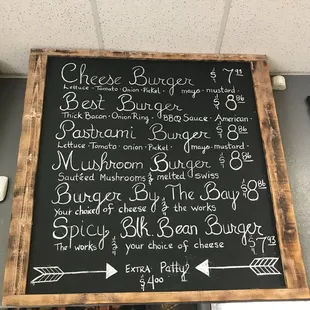 Cheese Burger $7.93
Lettuce · Tomato · Onion · Pickel · mayo · mustard
Best Burger $8.86
Thick Bacon · Onion Ring · BBQ Sauce · American ·
Pastrami Burger $8.86
Lettuce · Tomato · onion · Pickel · mayo · mustard
Mushroom Burger $8.86
Sautéed Mushrooms & melted swiss
Burger By The Bay $8.86
Your choice of cheese & the works
Spicy Blk. Bean Burger $7.93
The works & your choice of cheese
Extra Patty
$4.00